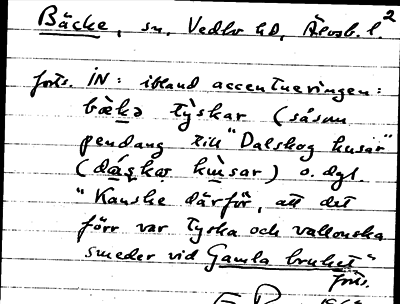 Bäcke, sn, Vedbo hd, Älvsb. l. 2
forts. IN: ibland accentueringen:
bàkə tỳskar (såsom
pendang till "Dalskog husar"
(dáskoɡ hùsar) o. dgl.
"Kanske därför, att det
förr var tyska och vallonska
smeder vid Gamla bruket"
forts.